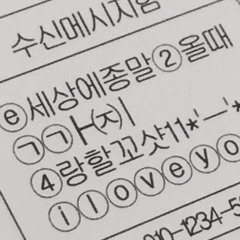 수신메시지함
ⓔ세상에종말②올때
㉠㉠ㅏ㈈ㅣ
④랑할꼬샷11*'─'*
ⓘⓛⓞⓥⓔⓨⓞ
010-1234-5